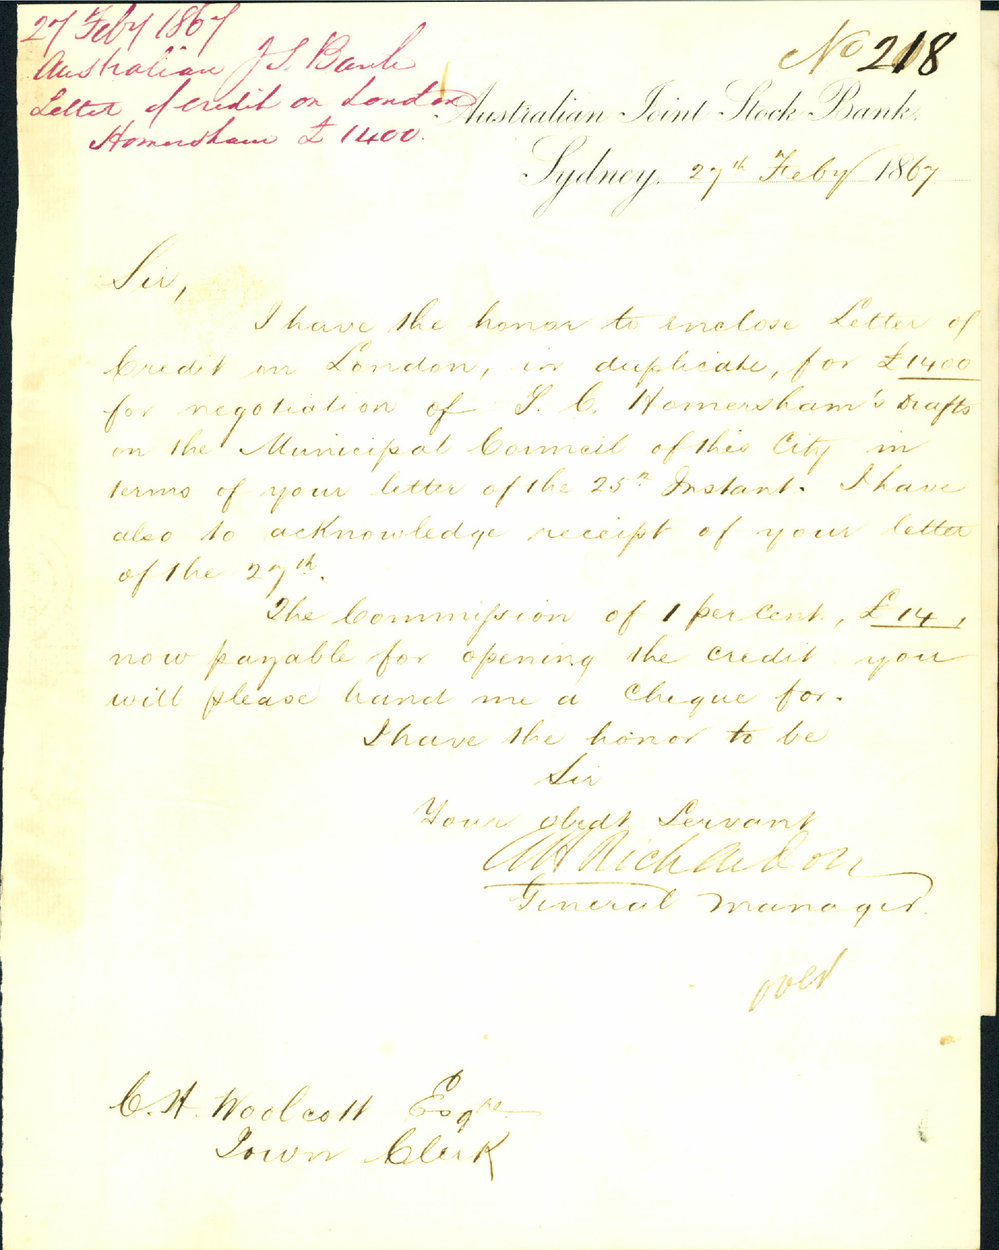 27 Feby 1867
Australian J S. Bank
Letter of Credit on London
Homersham £1400.
No 218
Australian Joint Stock Bank.
Sydney. 27th Feby 1867
Sir,
I have the honor to enclose Letter of
Credit on London, in duplicate, for £1400
for negotiation of S. C. Homersham's Drafts
on the Municipal Council of this City in
terms of your letter of the 25th Instant. I have
also to acknowledge receipt of your letter
of the 27th.
The Commission of 1 per cent, £14,
now payable for opening the credit you
will please hand me a Cheque for.
I have the honor to be
Sir
Your obedt Servant
AH Richardson
General Manager.
over
C. H. Woolcott Esqre
Town Clerk